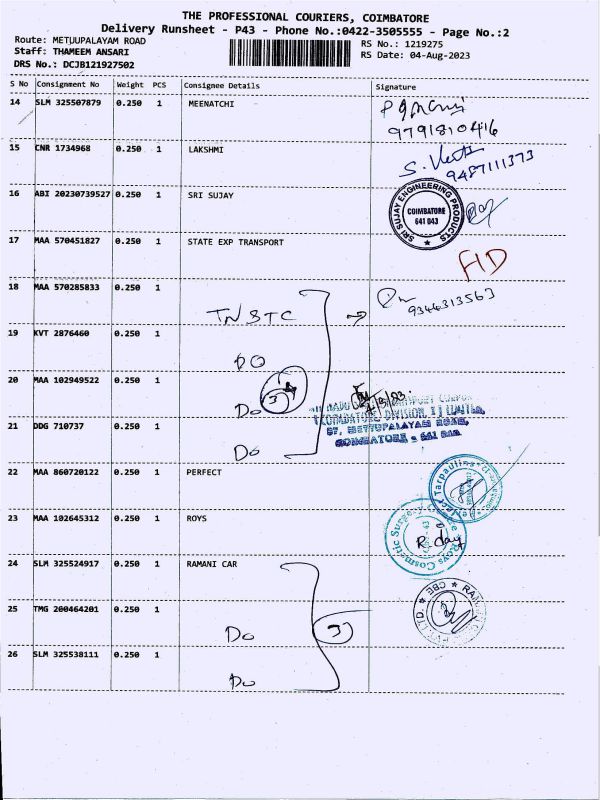 THE PROFESSIONAL COURIERS, COIMBATORE
Delivery Runsheet - P43 - Phone No.:0422-3505555 - Page No.:2
Route: METUUPALAYAM ROAD RS No.: 1219275
Staff: THAMEEM ANSARI RS Date: 04-Aug-2023
DRS No.: DCJB121927502
S No Consignment No Weight PCS Consignee Details Signature
14 SLM 325507879 0.250 1 MEENATCHI
9791810416
15 CNR 1734968 0.250 1 LAKSHMI
9487111373
16 ABI 20230739527 0.250 1 SRI SUJAY
SRI SUJAY ENGINEERING PRODUCTS
COIMBATORE
641 043
17 MAA 570451827 0.250 1 STATE EXP TRANSPORT
18 MAA 570285833 0.250 1
TNSTC → 9344313563
19 KVT 2876460 0.250 1
DO
20 MAA 102949522 0.250 1
Do 3
21 DDG 710737 0.250 1
Do
DIVISION, I) LIMITED,
37, METTUPALAYAM ROAD,
COIMBATORE - 641
22 MAA 860720122 0.250 1 PERFECT
Tarpaulin
23 MAA 102645312 0.250 1 ROYS
Roys Cosmetic Surgery
24 SLM 325524917 0.250 1 RAMANI CAR
CBE
PVT. LTD.
25 TMG 200464201 0.250 1
Do 3
26 SLM 325538111 0.250 1
Do